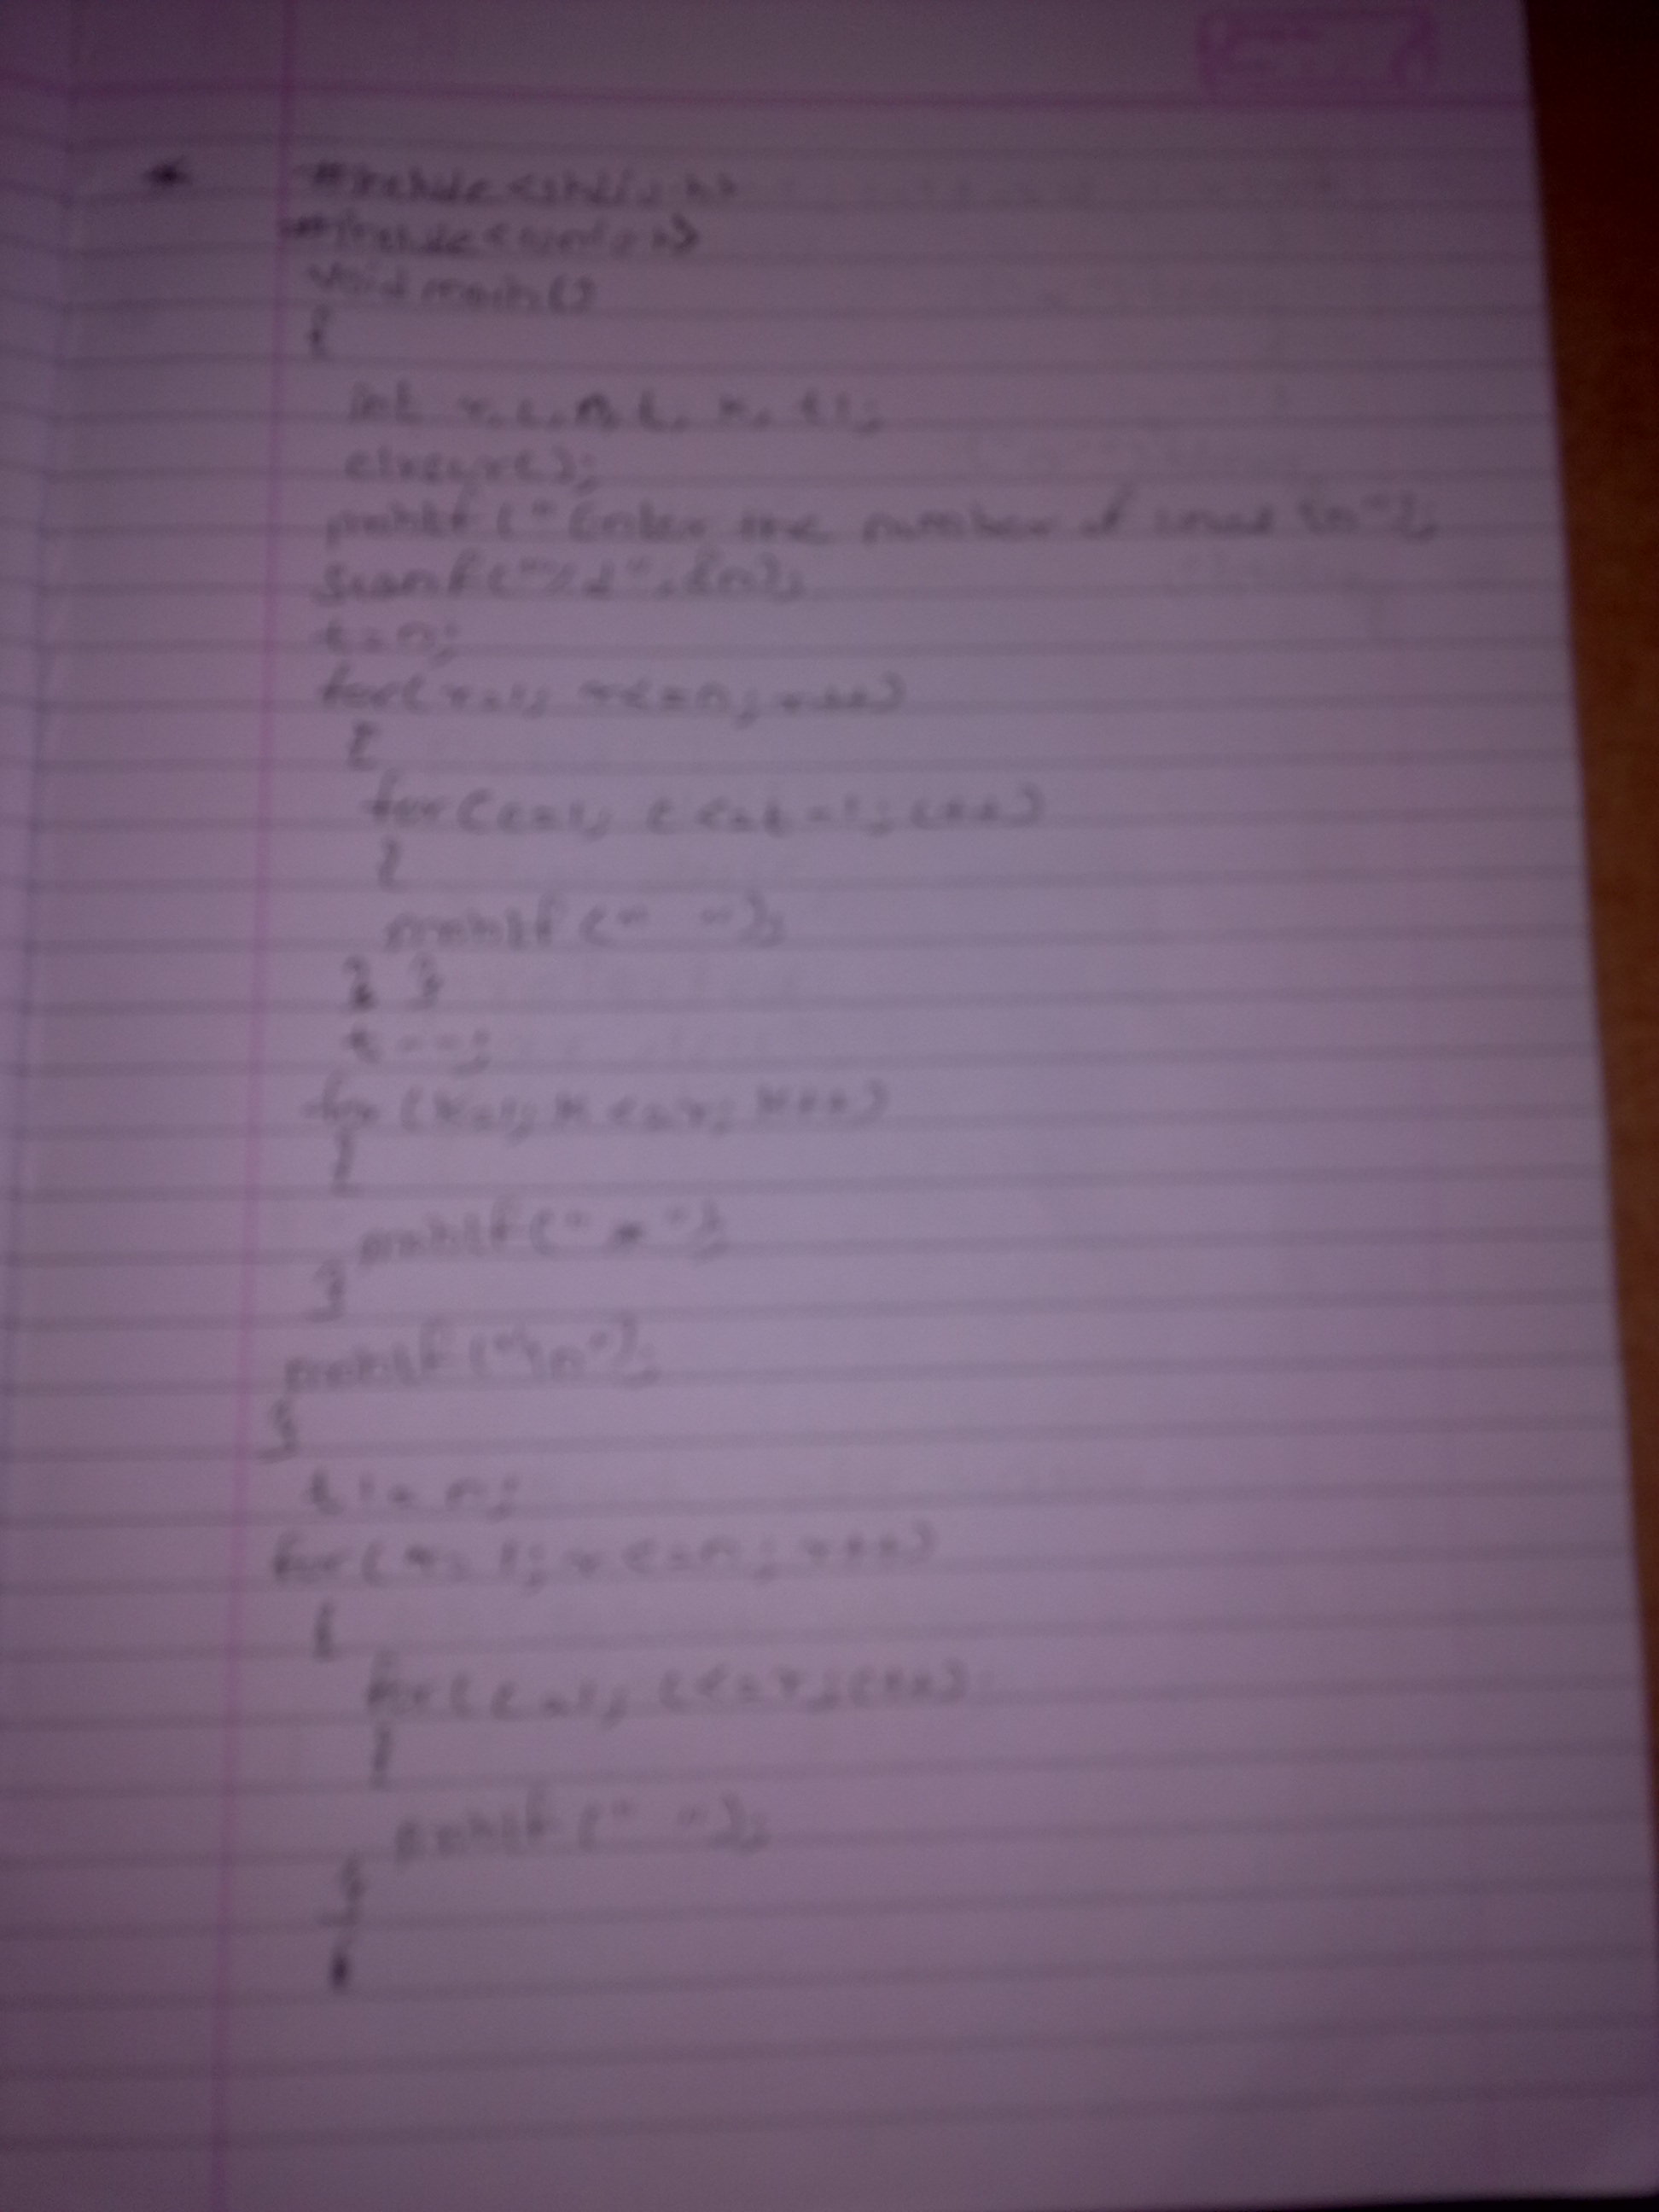 #include<stdio.h>
#include<conio.h>
void main()
{
int r, c, n, t, k, t1;
clrscr();
printf("Enter the number of \n");
scanf("%d", &n);
t=n;
for(r=1; r<=n; r++)
{
for(c=1; c<=t-1; c++)
{
printf(" ");
}
t--;
for(k=1; k<=r; k++)
{
printf(" * ");
}
printf("\n");
}
t1=n;
for(r=1; r<=n; r++)
{
for(c=1; c<=r; c++)
{
printf(" ");
}